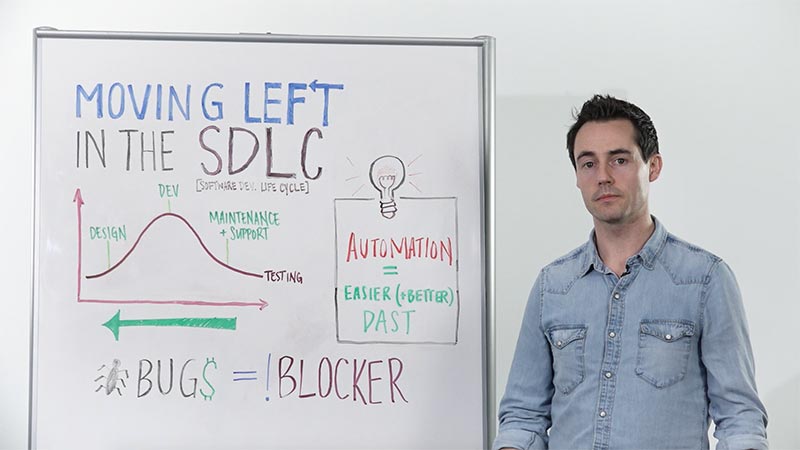 MOVING LEFT
IN THE SDLC
[SOFTWARE DEV. LIFE CYCLE]
DEV
DESIGN
MAINTENANCE
+ SUPPORT
TESTING
AUTOMATION
=
EASIER (+BETTER)
DAST
BUG$ = !BLOCKER